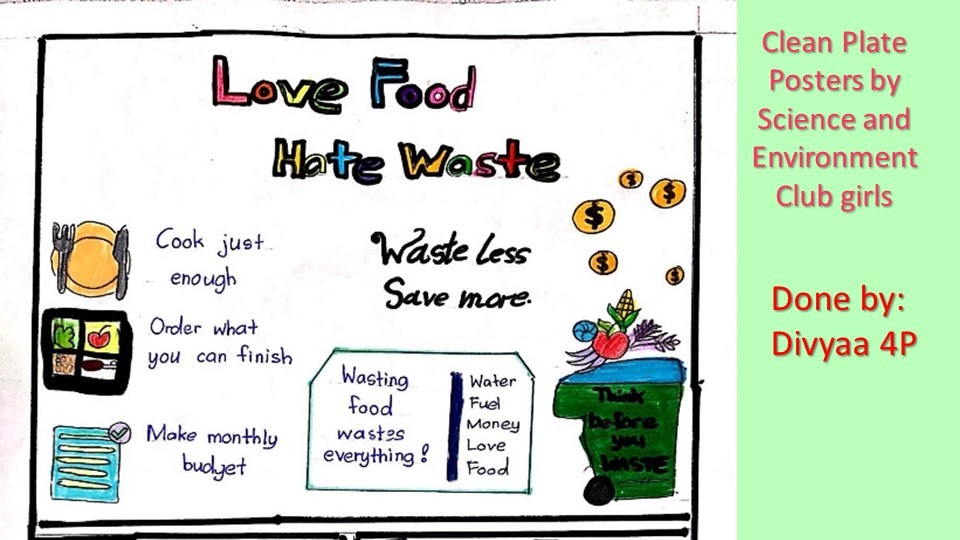 Love Food
Hate Waste
Cook just
enough
Order what
you can finish
Make monthly
budget
Waste less
Save more.
Wasting
food
wastes
everything!
Water
Fuel
Money
Love
Food
$
$
$
$
$
Think
before
you
WASTE
Clean Plate
Posters by
Science and
Environment
Club girls
Done by:
Divyaa 4P